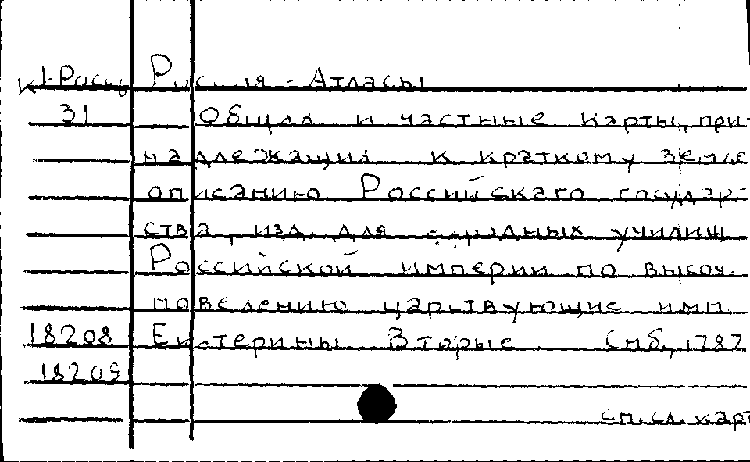 К1-Росс Россия - Атласы
31 Общая и частные карты, при-
надлежащия к краткому земле-
описанию Российскаго государ-
ства, изд. для народных училищ
Российской империи по высоч.
повелению царствующие имп.
18208 Екатерины Вторые. Спб., 1787
18209
см. сл. карт